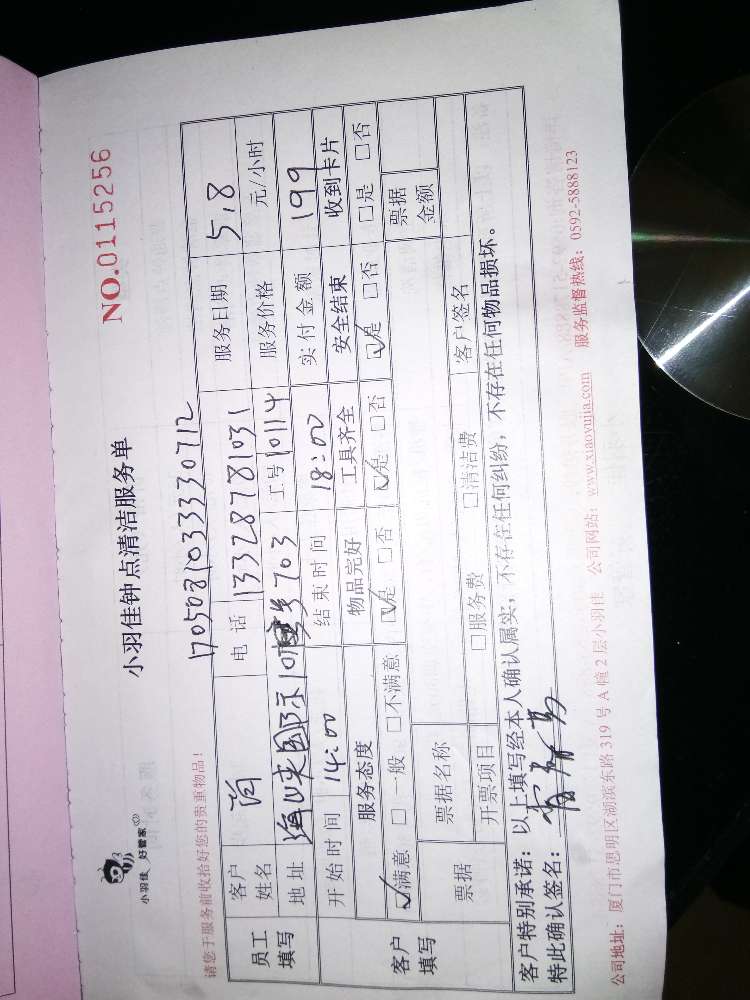 小羽佳 好管家
小羽佳钟点清洁服务单
NO.0115256
请您于服务前收拾好您的贵重物品！
170508103333071 2
员工填写
客户姓名
电话 13328781031 服务日期 5.8
地址 海峡国际 703 工号 10114 服务价格 元/小时
开始时间 14:00 结束时间 18:00 实付金额 199
客户填写
服务态度 物品完好 工具齐全 安全结束 收到卡片
☑满意 □一般 □不满意 ☑是 □否 ☑是 □否 ☑是 □否 □是 □否
票据 票据名称 票据金额
开票项目 □服务费 □清洁费 客户签名
客户特别承诺：以上填写经本人确认属实，不存在任何纠纷，不存在任何物品损坏。
特此确认签名：
公司地址：厦门市思明区湖滨东路319号A幢2层小羽佳 公司网站：www.xiaoyujia.com 服务监督热线：0592-5888123